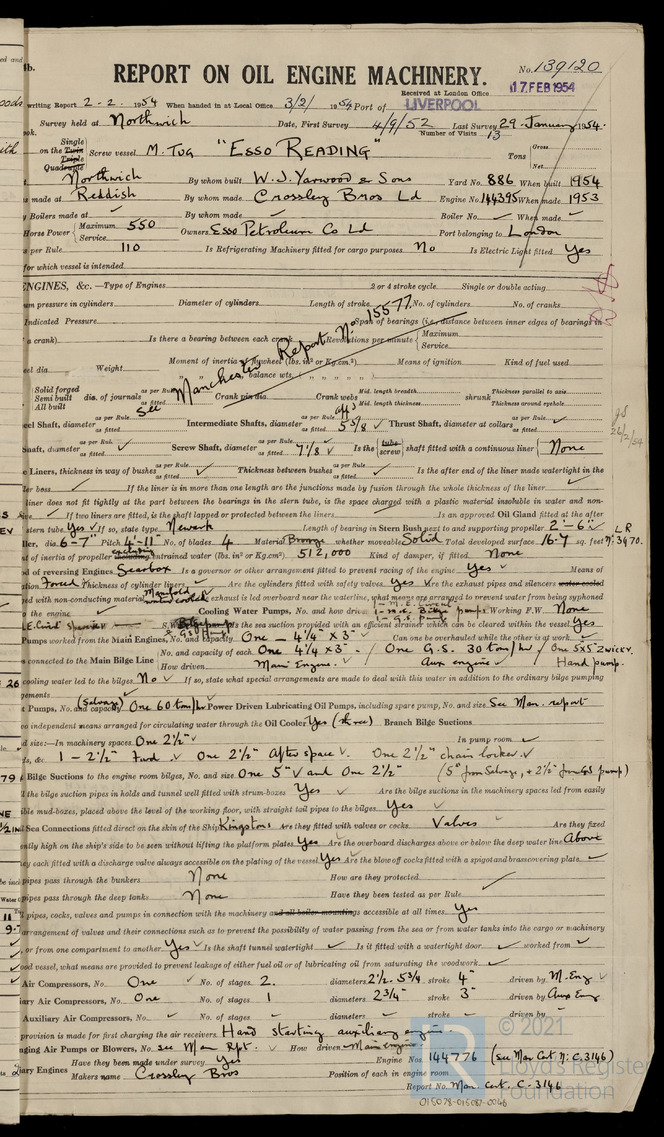 4b.
REPORT ON OIL ENGINE MACHINERY.
No. 139120
Received at London Office
17 FEB 1954
writing Report 2-2-1954 When handed in at Local Office 3/2/1954 Port of LIVERPOOL
Survey held at Northwich Date, First Survey 4/9/52 Last Survey 29 January 1954.
Number of Visits 13
on the Single Twin Triple Quadruple Screw vessel M. Tug "ESSO READING" Tons Gross Net
Northwich By whom built W. J. Yarwood & Sons Yard No. 886 When built 1954
s made at Reddish By whom made Crossley Bros Ld Engine No. 144395 When made 1953
y Boilers made at ✓ By whom made ✓ Boiler No. ✓ When made ✓
Horse Power Maximum 550 Service Owners Esso Petroleum Co Ld Port belonging to London
as per Rule 110 Is Refrigerating Machinery fitted for cargo purposes No Is Electric Light fitted Yes
for which vessel is intended
ENGINES, &c. —Type of Engines 2 or 4 stroke cycle Single or double acting
um pressure in cylinders Diameter of cylinders Length of stroke No. of cylinders No. of cranks
Indicated Pressure Span of bearings (i.e., distance between inner edges of bearings in
a crank) Is there a bearing between each crank Revolutions per minute Maximum Service
See Manchester Report No 15577
eel dia Weight Moment of inertia of flywheel (lbs. in² or Kg.cm²) Means of ignition Kind of fuel used
balance wts.
Solid forged Semi built All built dia. of journals as per Rule as fitted Crank pin dia. Crank webs Mid. length breadth Mid. length thickness shrunk Thickness parallel to axis Thickness around eyehole
eel Shaft, diameter as per Rule as fitted Intermediate Shafts, diameter as per Rule as fitted 5 5/8 ✓ Thrust Shaft, diameter at collars as per Rule as fitted
Shaft, diameter as per Rule as fitted Screw Shaft, diameter as per Rule as fitted 7 1/8 ✓ Is the tube screw shaft fitted with a continuous liner None
e Liners, thickness in way of bushes as per Rule as fitted Thickness between bushes as per Rule as fitted Is the after end of the liner made watertight in the
ler boss If the liner is in more than one length are the junctions made by fusion through the whole thickness of the liner
liner does not fit tightly at the part between the bearings in the stern tube, is the space charged with a plastic material insoluble in water and non-
If two liners are fitted, is the shaft lapped or protected between the liners Is an approved Oil Gland fitted at the after
stern tube Yes ✓ If so, state type Newark Length of bearing in Stern Bush next to and supporting propeller 2'-6" ✓
ler, dia. 6-7" Pitch 4'-11" No. of blades 4 Material Bronze whether moveable Solid Total developed surface 16.7 sq. feet LR No: 3470.
nt of inertia of propeller excluding including entrained water (lbs. in² or Kg.cm²) 512,000 Kind of damper, if fitted None
od of reversing Engines Gearbox Is a governor or other arrangement fitted to prevent racing of the engine Yes ✓ Means of
ation Forced Thickness of cylinder liners ✓ Are the cylinders fitted with safety valves Yes ✓ Are the exhaust pipes and silencers water cooled
ed with non-conducting material Manifold water cooled If the exhaust is led overboard near the waterline, what means are arranged to prevent water from being syphoned
to the engine ✓ Cooling Water Pumps, No. and how driven Working F.W. None
is the sea suction provided with an efficient strainer which can be cleared within the vessel Yes
Pumps worked from the Main Engines, No. and capacity One - 4¼" x 3" Can one be overhauled while the other is at work
s connected to the Main Bilge Line No. and capacity of each One 4¼ x 3" / One G.S. 30 tons/hr. One 5x5
How driven Main Engine. Aux engine Hand pump.
cooling water led to the bilges No ✓ If so, state what special arrangements are made to deal with this water in addition to the ordinary bilge pumping
gements
Pumps, No. and capacity (Salvage) One 60 tons/hr Power Driven Lubricating Oil Pumps, including spare pump, No. and size See Man. report
wo independent means arranged for circulating water through the Oil Cooler Yes (three) Branch Bilge Suctions
d size:—In machinery spaces One 2½" ✓ In pump room ✓
ds, &c. 1 - 2½" Fwd. ✓ One 2½" After space ✓. One 2½" chain locker. ✓
Bilge Suctions to the engine room bilges, No. and size One 5" ✓ and One 2½" (5" from Salvage, & 2½" from GS pump)
d the bilge suction pipes in holds and tunnel well fitted with strum-boxes Yes ✓ Are the bilge suctions in the machinery spaces led from easily
ible mud-boxes, placed above the level of the working floor, with straight tail pipes to the bilges Yes ✓
Sea Connections fitted direct on the skin of the Ship Kingstons Are they fitted with valves or cocks Valves ✓ Are they fixed
ently high on the ship's side to be seen without lifting the platform plates Yes Are the overboard discharges above or below the deep water line Above
ey each fitted with a discharge valve always accessible on the plating of the vessel Yes Are the blow off cocks fitted with a spigot and brass covering plate ✓
pipes pass through the bunkers None How are they protected
pipes pass through the deep tanks None Have they been tested as per Rule ✓
l pipes, cocks, valves and pumps in connection with the machinery and all boiler mountings accessible at all times Yes
arrangement of valves and their connections such as to prevent the possibility of water passing from the sea or from water tanks into the cargo or machinery
, or from one compartment to another Yes ✓ Is the shaft tunnel watertight ✓ Is it fitted with a watertight door ✓ worked from ✓
ood vessel, what means are provided to prevent leakage of either fuel oil or of lubricating oil from saturating the woodwork ✓
Air Compressors, No. One ✓ No. of stages 2. diameters 2½. 5¾ stroke 4" driven by M. Eng ✓
iary Air Compressors, No. One No. of stages 1 diameters 2¾" stroke 3" driven by Aux Eng
Auxiliary Air Compressors, No. ✓ No. of stages ✓ diameters ✓ stroke ✓ driven by ✓
provision is made for first charging the air receivers Hand starting auxiliary engine
nging Air Pumps or Blowers, No. See Man Rpt. ✓ How driven Main engine
iary Engines Have they been made under survey Yes Engine Nos. 144776 (see Man Cert No: C.3146)
Makers name Crossley Bros Position of each in engine room
Report No. Man. Cert. C.3146
015078-015087-0046
© 2021
Lloyd's Register
Foundation